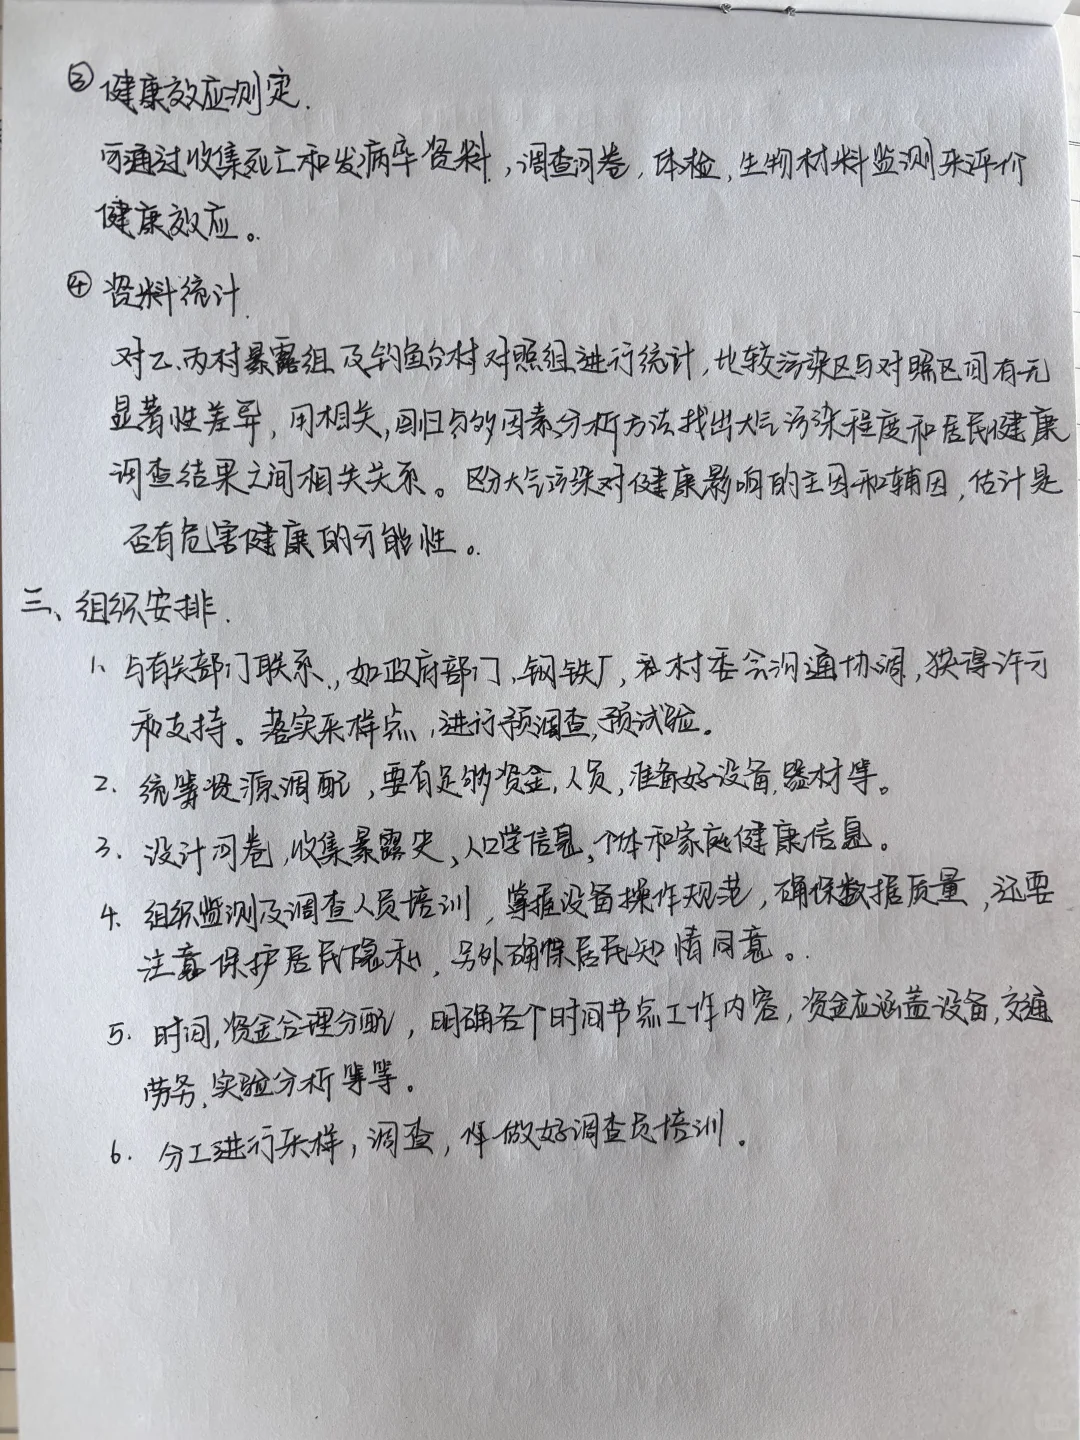 ③ 健康效应测定.
可通过收集死亡和发病率资料,调查问卷,体检,生物材料监测来评价
健康效应。
④ 资料统计
对乙、丙村暴露组及钓鱼台村对照组进行统计,比较污染区与对照区间有无
显著性差异,用相关,回归与多因素分析方法找出大气污染程度和居民健康
调查结果之间相关关系。区分大气污染对健康影响的主因和辅因,估计是
否有危害健康的可能性。
三、组织安排.
1. 与有关部门联系,如政府部门,钢铁厂,和村委会沟通协调,获得许可
和支持。落实采样点,进行预调查,预试验。
2. 统筹资源调配,要有足够资金,人员,准备好设备,器材等。
3. 设计问卷,收集暴露史、人口学信息,个体和家庭健康信息。
4. 组织监测及调查人员培训,掌握设备操作规范,确保数据质量,还要
注意保护居民隐私,另外确保居民知情同意。
5. 时间,资金合理分配,明确各个时间节点工作内容,资金应涵盖设备,交通
劳务,实验分析等等。
6. 分工进行采样,调查,做好调查员培训。